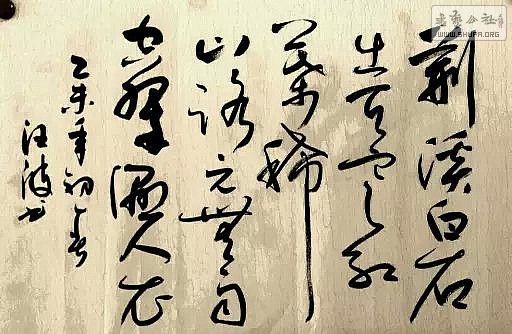 荆溪白石
出天寒红
葉稀
山路元無雨
空翠濕人衣
乙未年初春
汪波书
书艺公社
WWW.SHUFA.ORG